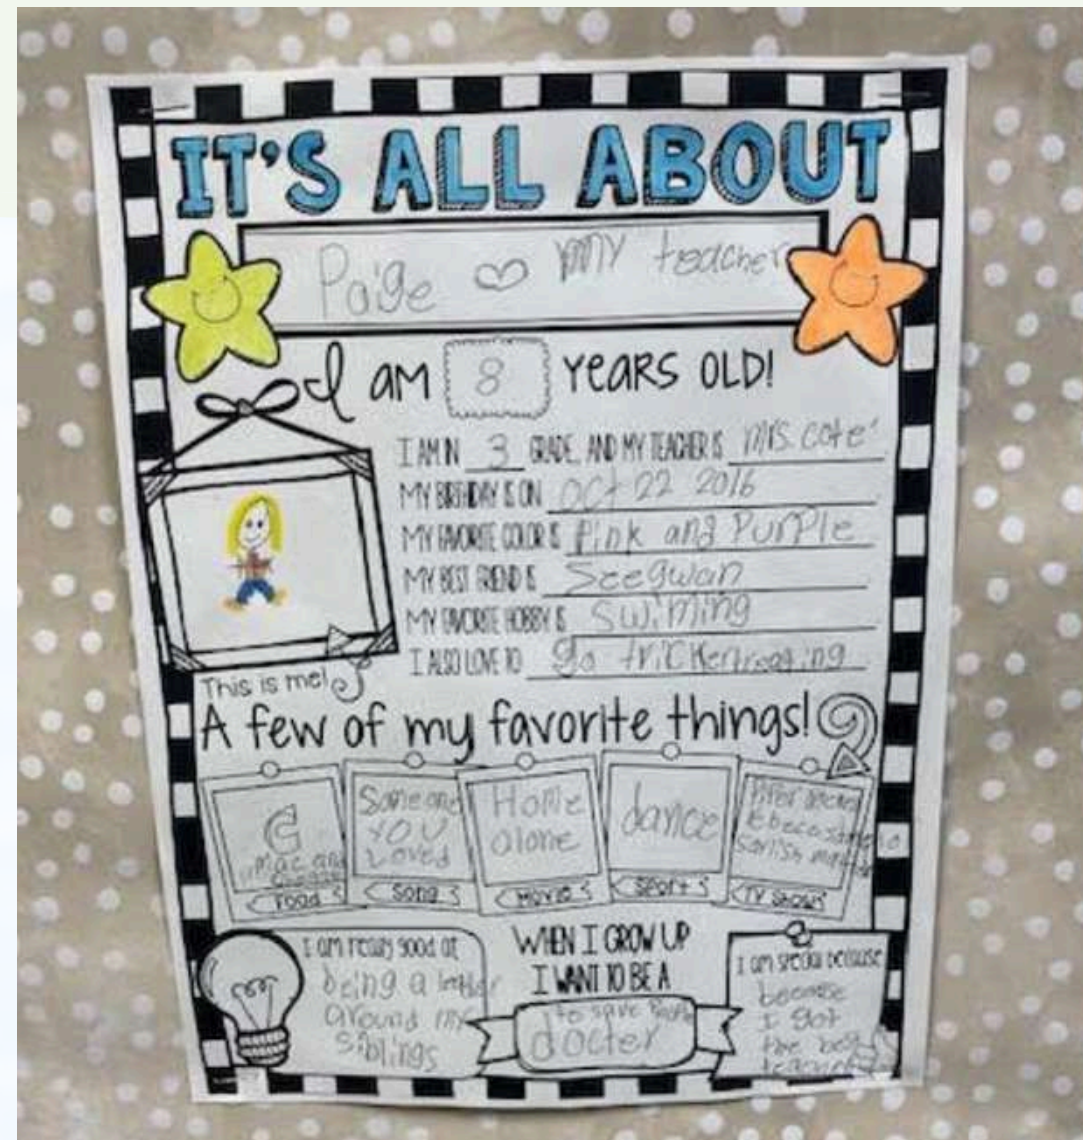 IT'S ALL ABOUT
Paige ♡ my teacher
I AM 8 YEARS OLD!
I AM IN 3 GRADE, AND MY TEACHER IS Mrs. cote'
MY BIRTHDAY IS ON Oct 22 2016
MY FAVORITE COLOR IS Pink and Purple
MY BEST FRIEND IS Seegwan
MY FAVORITE HOBBY IS Swiming
I ALSO LOVE TO go
This is me!
A few of my favorite things!
Mac and
Food
Someone
YOU
Loved
Song
Home
alone
Movie
dance
Sport
TV Show
I am really good at
being a
around my
siblings
WHEN I GROW UP
I WANT TO BE A
to save
docter
I am special because
because
I got
the best